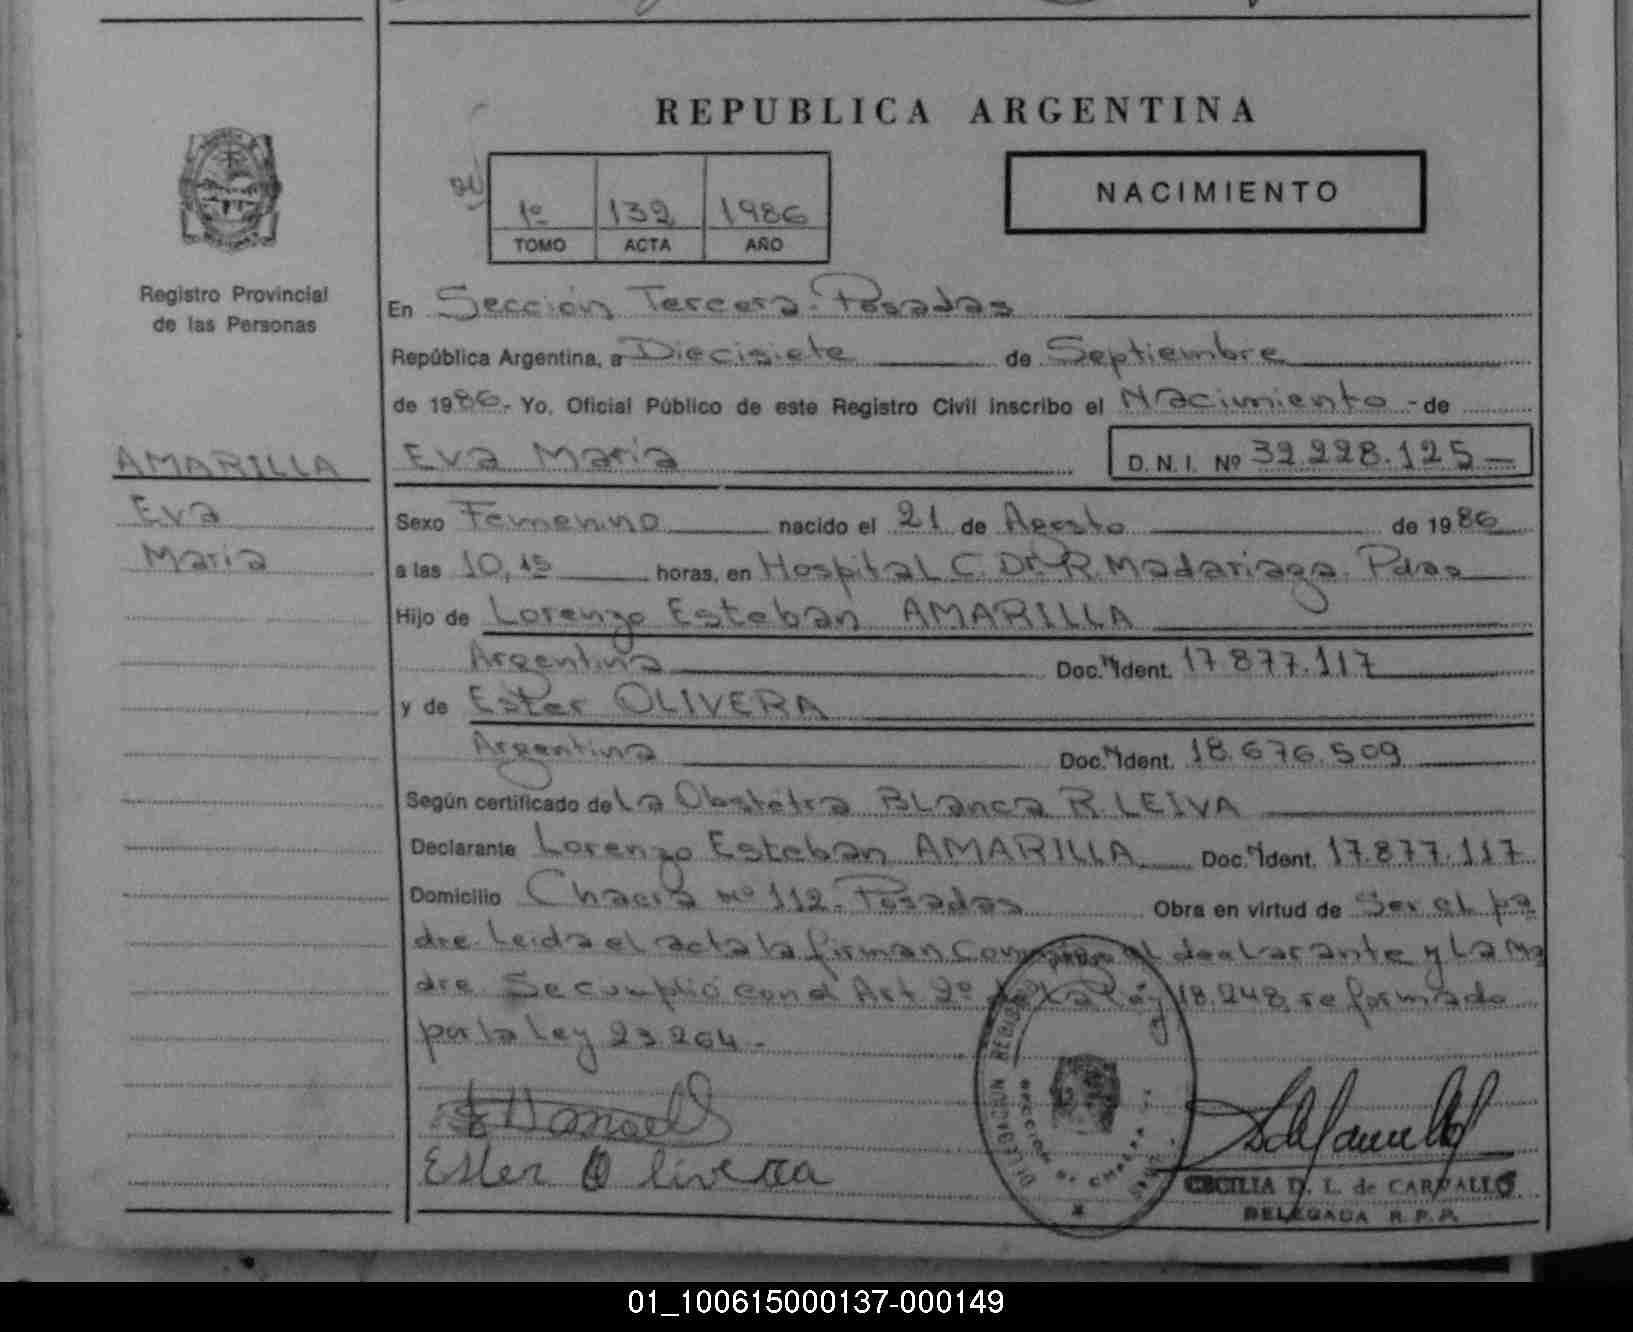 REPUBLICA ARGENTINA
NACIMIENTO
1º 132 1986
TOMO ACTA AÑO
Registro Provincial
de las Personas
En Sección Tercera - Posadas
República Argentina, a Diecisiete de Septiembre
de 1986.- Yo, Oficial Público de este Registro Civil inscribo el Nacimiento - de
AMARILLA
Eva
Maria
Eva Maria D. N. I. Nº 32.228.125
Sexo Femenino nacido el 21 de Agosto de 1986
a las 10,15 horas, en Hospital C. Dr. R. Madariaga. Pdas
Hijo de Lorenzo Esteban AMARILLA
Argentina Doc. Ident. 17.877.117
y de Ester OLIVERA
Argentina Doc. Ident. 18.676.509
Según certificado de La Obstétra BLanca R. LEIVA
Declarante Lorenzo Esteban AMARILLA Doc. Ident. 17.877.117
Domicilio Chacra nº 112 - Posadas Obra en virtud de Ser el pa
dre. Leida el acta la firman Conmigo el declarante y La Ma
dre. Se cumplió con el Art. 2º de La Ley 18.248 reformado
por la Ley 23.264 -
Ester Olivera
CECILIA D. L. de CARVALLO
DELEGADA R. P. P.
01_100615000137-000149